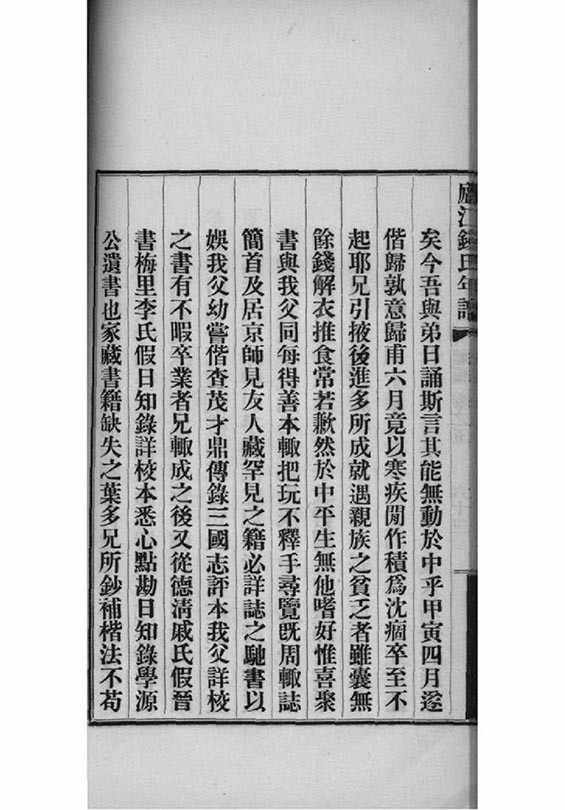 廬江錢氏年譜
矣今吾與弟日誦斯言其能無動於中乎甲寅四月遂
偕歸孰意歸甫六月竟以寒疾閒作積爲沈痼卒至不
起耶兄引掖後進多所成就遇親族之貧乏者雖囊無
餘錢解衣推食常若歉然於中平生無他嗜好惟喜聚
書與我父同每得善本輙把玩不釋手尋覽旣周輙誌
簡首及居京師見友人藏罕見之籍必詳誌之馳書以
娛我父幼嘗偕查茂才鼎傳錄三國志評本我父詳校
之書有不暇卒業者兄輙成之後又從德淸戚氏假晉
書梅里李氏假日知錄詳校本悉心點勘日知錄學源
公遺書也家藏書籍缺失之葉多兄所鈔補楷法不苟